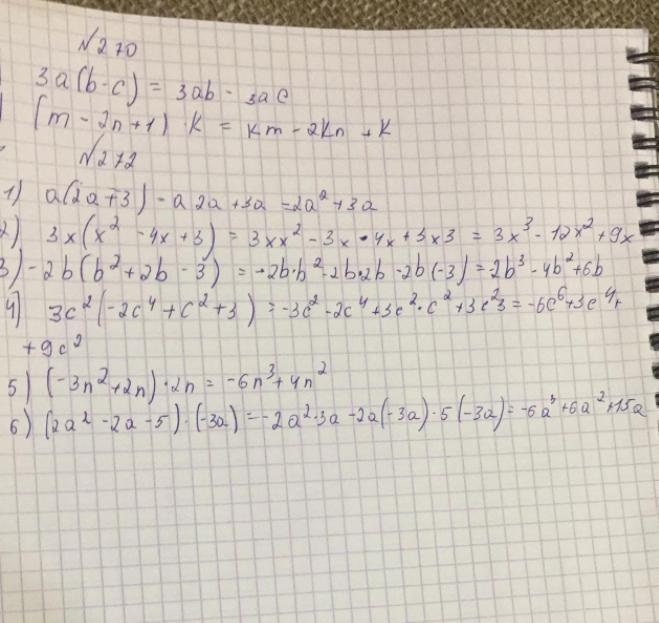 №270
3a(b-c) = 3ab - 3ac
(m - 2n+1) · k = km - 2kn + k
№272
1) a(2a+3) = a 2a + 3a = 2a² + 3a
2) 3x(x² - 4x + 3) = 3xx² - 3x · 4x + 3x3 = 3x³ - 12x² + 9x
3) -2b(b² + 2b - 3) = -2b·b² - 2b·2b - 2b(-3) = 2b³ - 4b² + 6b
4) 3c²(-2c⁴ + c² + 3) = -3c² - 2c⁴ + 3c²·c² + 3c²3 = -6c⁶ + 3c⁴ +
+ 9c²
5) (-3n² + 2n) · 2n = -6n³ + 4n²
6) (2a² - 2a - 5) · (-3a) = -2a²·3a - 2a(-3a) - 5(-3a) = -6a³ + 6a² + 15a